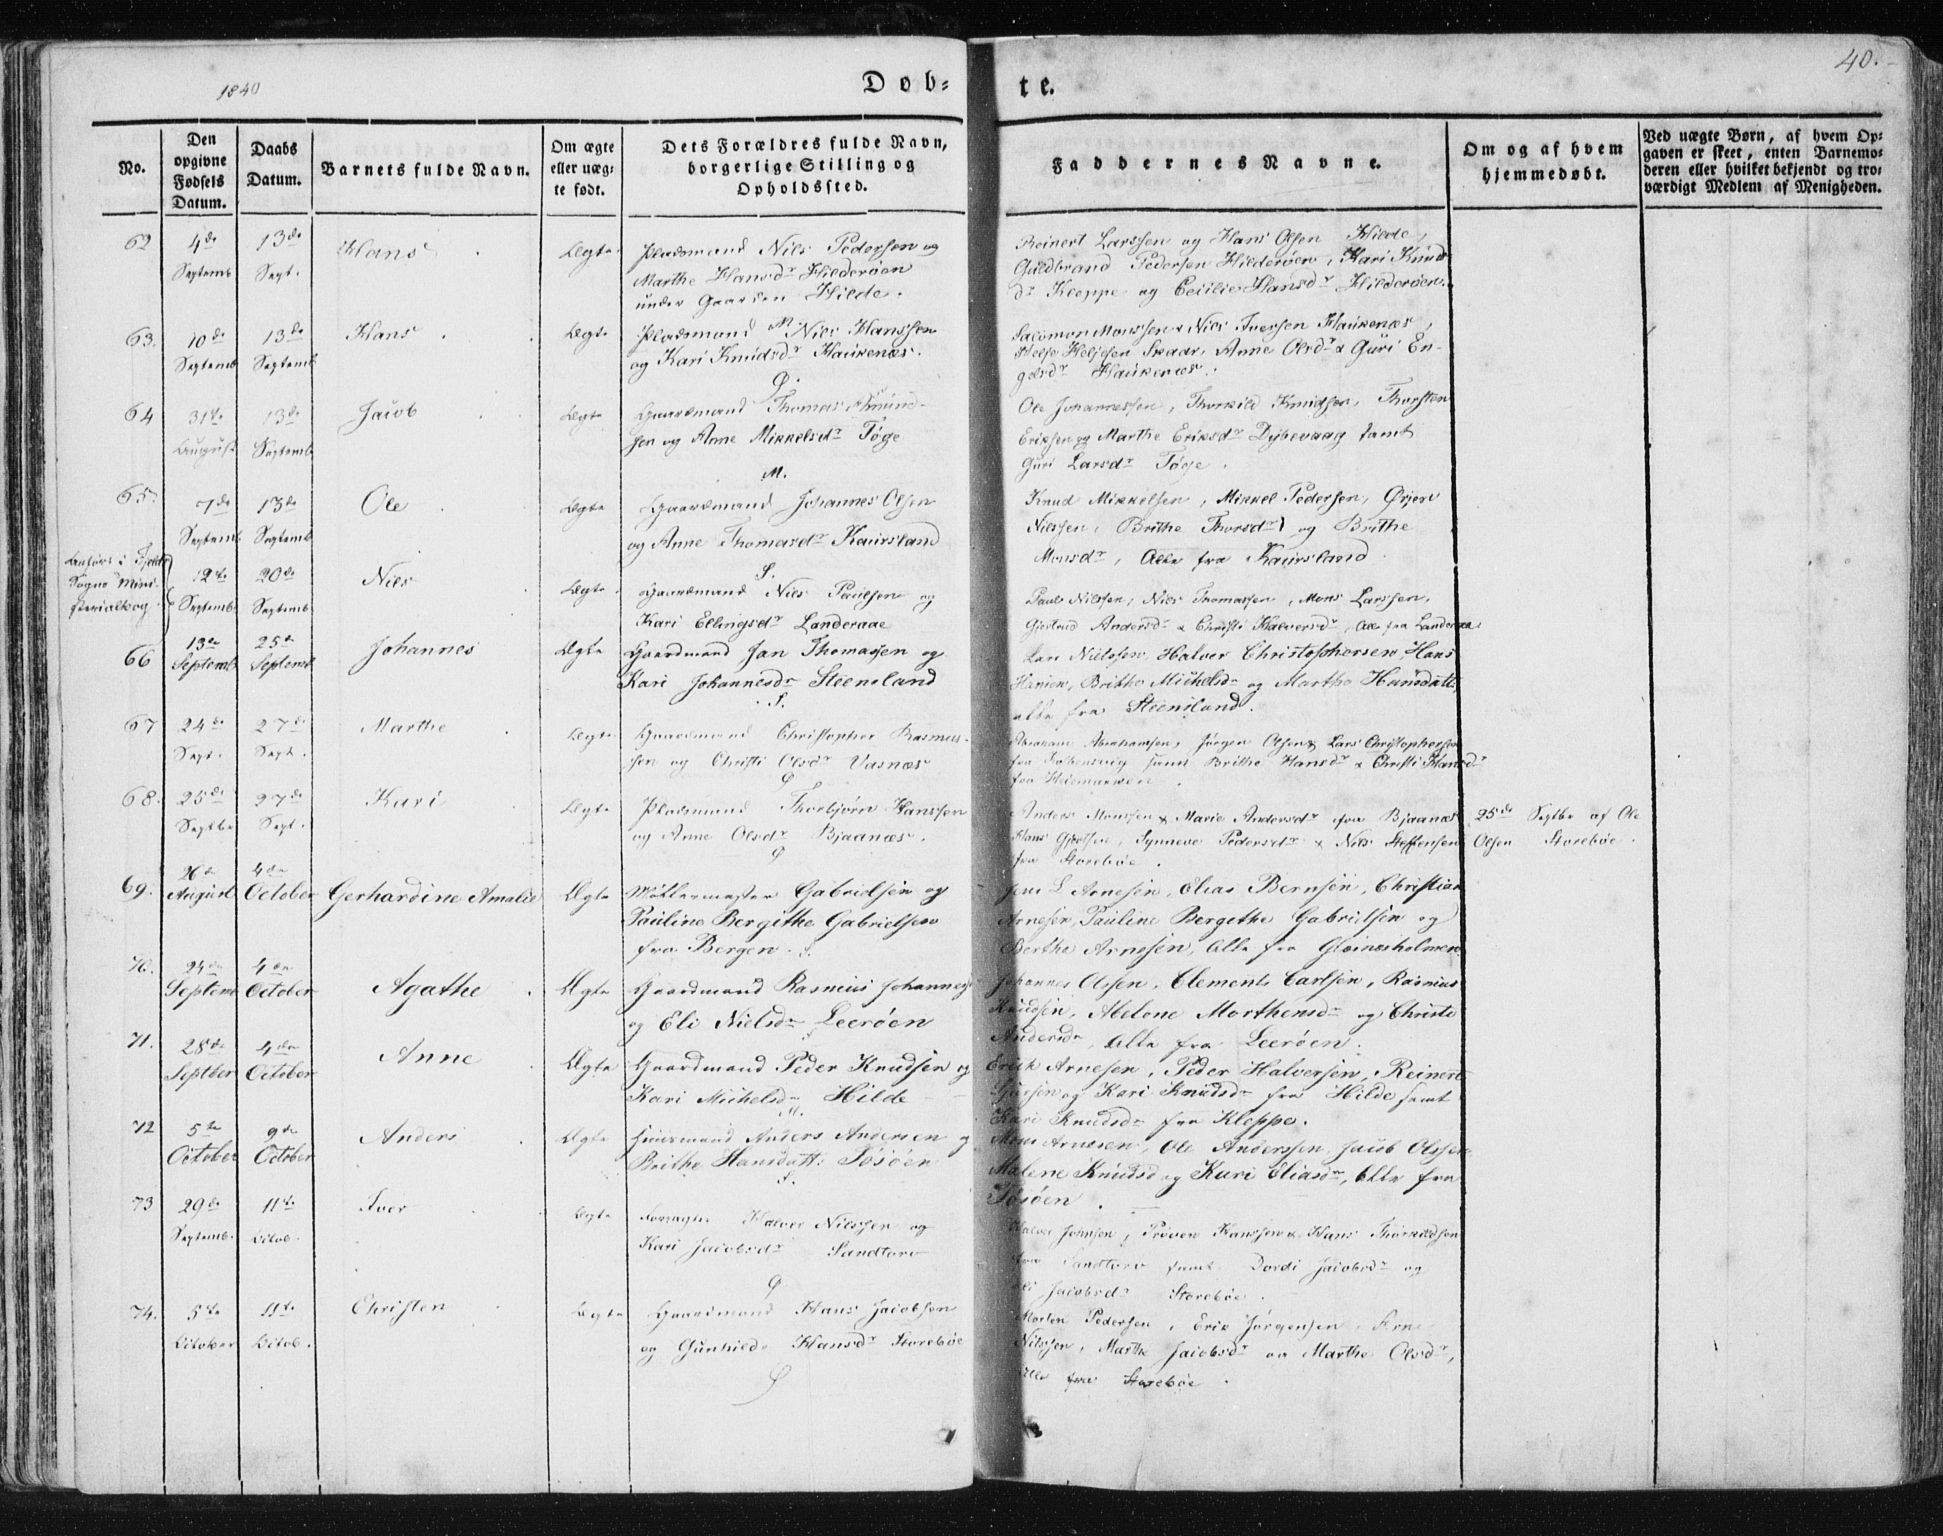 1840
Dob=
te.
40.
No.
Den opgivne Fødsels Datum.
Daabs Datum.
Barnets fulde Navn.
Om ægte eller uæg= te født.
Dets Forældres fulde Navn, borgerlige Stilling og Opholdssted.
Faddernes Navne.
Om og af hvem hjemmedøbt.
Ved uægte Børn, af hvem Op= gaven er skeet, enten Barnemo= deren eller hvilket bekjendt og tro= værdigt Medlem af Menigheden.
62 4de Septemb 13de Sept. Hans Ægte
Pladsmand Nils Pedersen og
Marthe Hansdr Hilderøen
under Gaarden Hilde.
Reinert Larssen og Hans Olsen Hilde,
Guldbrand Pedersen Hilderøen, Kari Knud
dr Kleppe og Cecilie Hansdr Hilderøen.
63. 10de Septemb 13de Septemb Hans Ægte
Pladsmand Nils Hanssen
og Kari Knudsdr Haukenæs.
Salomon Monssen & Nils Iversen Haukenæs,
Helje Heljesen Skaar, Anne Olsdr & Guri En-
gelsdr Haukenæs.
64 31te August 13de Septemb Jacob Ægte
Gaardmand Thomas Amund-
sen og Anne Mikkelsdr Tøge
Ole Johannessen, Thorkild Knudsen, Thorsten
Eriksen og Marthe Eriksdr Dybevaag samt
Guri Larsdr Tøge.
65. 7de Septemb 13de Septemb Ole Ægte
M.
Gaardmand Johannes Olsen
og Anne Thomasdr Kaursland
Knud Mikkelsen, Mikkel Pedersen, Ørjen
Nilssen, Brithe Thorsdr og Brithe
Monsdr, Alle fra Kaursland
Anførs i Fjeld
Sogns Mini-
sterialbog
12te Septemb 20de Septemb Nils Ægte
Gaardmand Nils Paulsen og
Kari Ellingsdr Landeraae
Paul Nilssen, Nils Thomassen, Mons Larssen,
Gjertrud Andersdr & Christi Halversdr, Alle fra Landeraae
66 13de Septemb 25de Septemb Johannes Ægte
Gaardmand Jan Thomassen og
Kari Johannesdr Steensland
Lars Nielssen, Halver Christophersen, Hans
Hansen, Brithe Michelsdr og Marthe Hansdatt.
alle fra Steensland.
67 24de Sept. 27de Sept. Marthe Ægte
Gaardmand Christopher Rasmus-
sen og Christi Olsdr Vasnæs
Abraham Abrahamsen, Jørgen Olsen & Lars Christophersen
samt Brithe Hansdr & Christi Hansdr
68. 25de Septbr 27de Sept. Kari Ægte
Pladsmand Thorbjørn Hanssen
og Anne Olsdr Bjaanæs.
Anders Monssen & Marie Andersdr fra Bjaanæs
Hans Synneve Pedersdr & Nils Steffensen
fra Storebøe.
25de Septbr af Ole
Olsen Storebøe.
69. 26de August 4de October Gerhardine Amalie Ægte
Gabrielsen og
Pauline Bergithe Gabrielsen
fra Bergen.
Jens L Arnesen, Elias Bernsen, Christian
Arnesen, Pauline Bergithe Gabrielsen og
Berthe Arnesen, Alle fra Gloinesholmen.
70. 24de Septem 4de October Agathe Ægte
Gaardmand Rasmus Johannes
og Eli Nielsdr Leerøen
Johannes Olssen, Clements Carlsen, Rasmus
Knudsen, Abelone Morthensdr og Christi
Andersdr, Alle fra Leerøen.
71. 28de Septber 4de October Anne Ægte
Gaardmand Peder Knudsen og
Kari Michelsdr Hilde
Erich Arnesen, Peder Halversen, Reinert
og Kari Knudsdr fra Hilde samt
Kari Knudsdr fra Kleppe.
72 5te October 9de October Anders Ægte
M.
Huusmand Anders Andersen og
Brithe Hansdatt: Tøsøen
Mons Arnesen, Ole Anderssen, Jacob Olssen
Malene Knudsd og Kari Eliasdr, Alle fra
Tøsøen.
73 29de Septemb. 11te Octob. Iver Ægte
Halver Nilssen og
Kari Jacobsdr Sandtorv
Halver Johnsen, Hanssen & Hans Thorkildsen
fra Sandtorv samt Dordi Jacobsdr og
Jacobsdr Storebøe.
74. 5te October 11te Octob. Christen Ægte
Gaardmand Hans Jacobsen
og Gunhilde Hansdr Storebøe
Morten Pedersen, Erik Jørgensen, Arne
Nilssen, Marthe Jacobsdr og Marthe Olsdr,
Alle fra Storebøe.